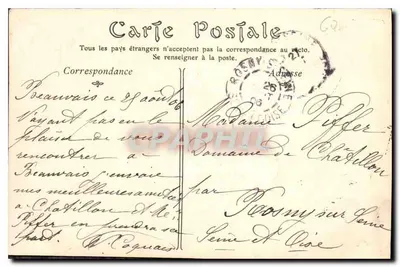 Carte Postale
Tous les pays étrangers n'acceptent pas la correspondance au recto.
Se renseigner à la poste.
Correspondance
Adresse
Beauvais ce 25 août 06
N'ayant pas eu le
plaisir de vous
rencontrer a
Beauvais j'envoie
mes meilleures
a Châtillon
Piffer en prendra sa
part.
Madame Piffer
Domaine de Châtillon
par
Rosny sur Seine
Seine et Oise
ROSNY